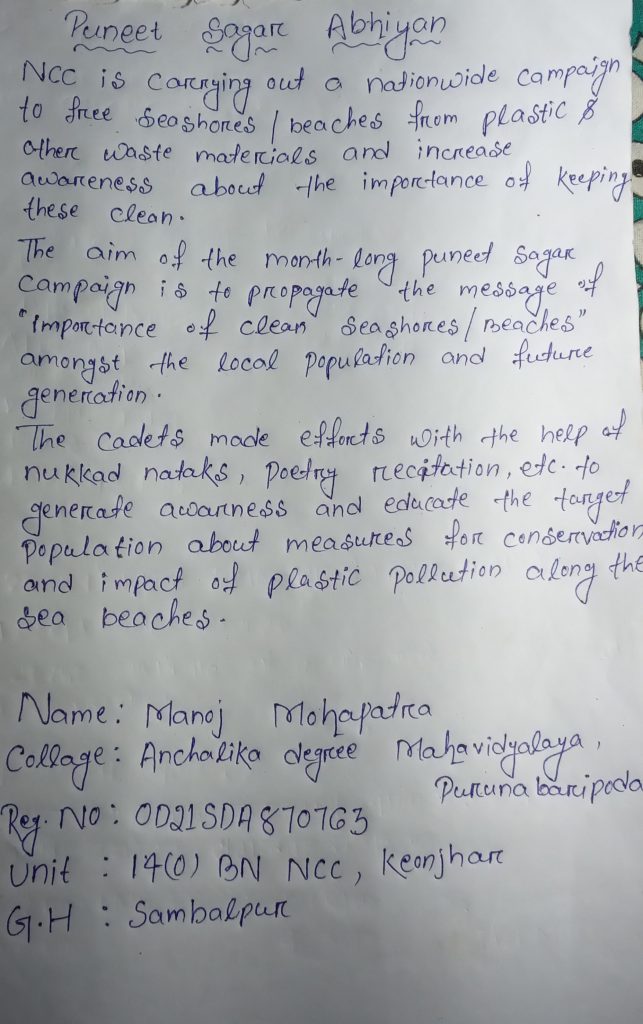 Puneet Sagar Abhiyan
NCC is carrying out a nationwide campaign
to free seashores / beaches from plastic &
other waste materials and increase
awareness about the importance of keeping
these clean.
The aim of the month-long puneet sagar
campaign is to propagate the message of
"importance of clean seashores / Beaches"
amongst the local population and future
generation.
The cadets made efforts with the help of
nukkad nataks, poetry recitation, etc. to
generate awarness and educate the target
population about measures for conservation
and impact of plastic pollution along the
sea beaches.
Name: Manoj Mohapatra
Collage: Anchalika degree Mahavidyalaya,
Purunabaripoda
Reg. No: OD21SDA870763
Unit : 14(O) BN NCC, Keonjhar
G.H : Sambalpur